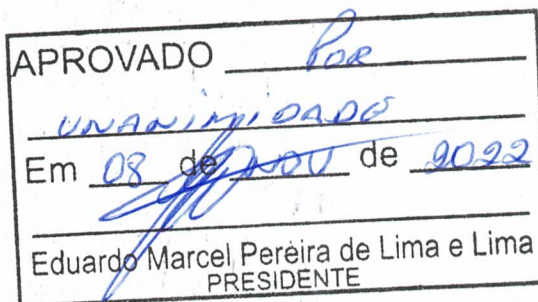 APROVADO Por
UNANIMIDADE
Em 08 de NOV de 2022
Eduardo Marcel Pereira de Lima e Lima
PRESIDENTE